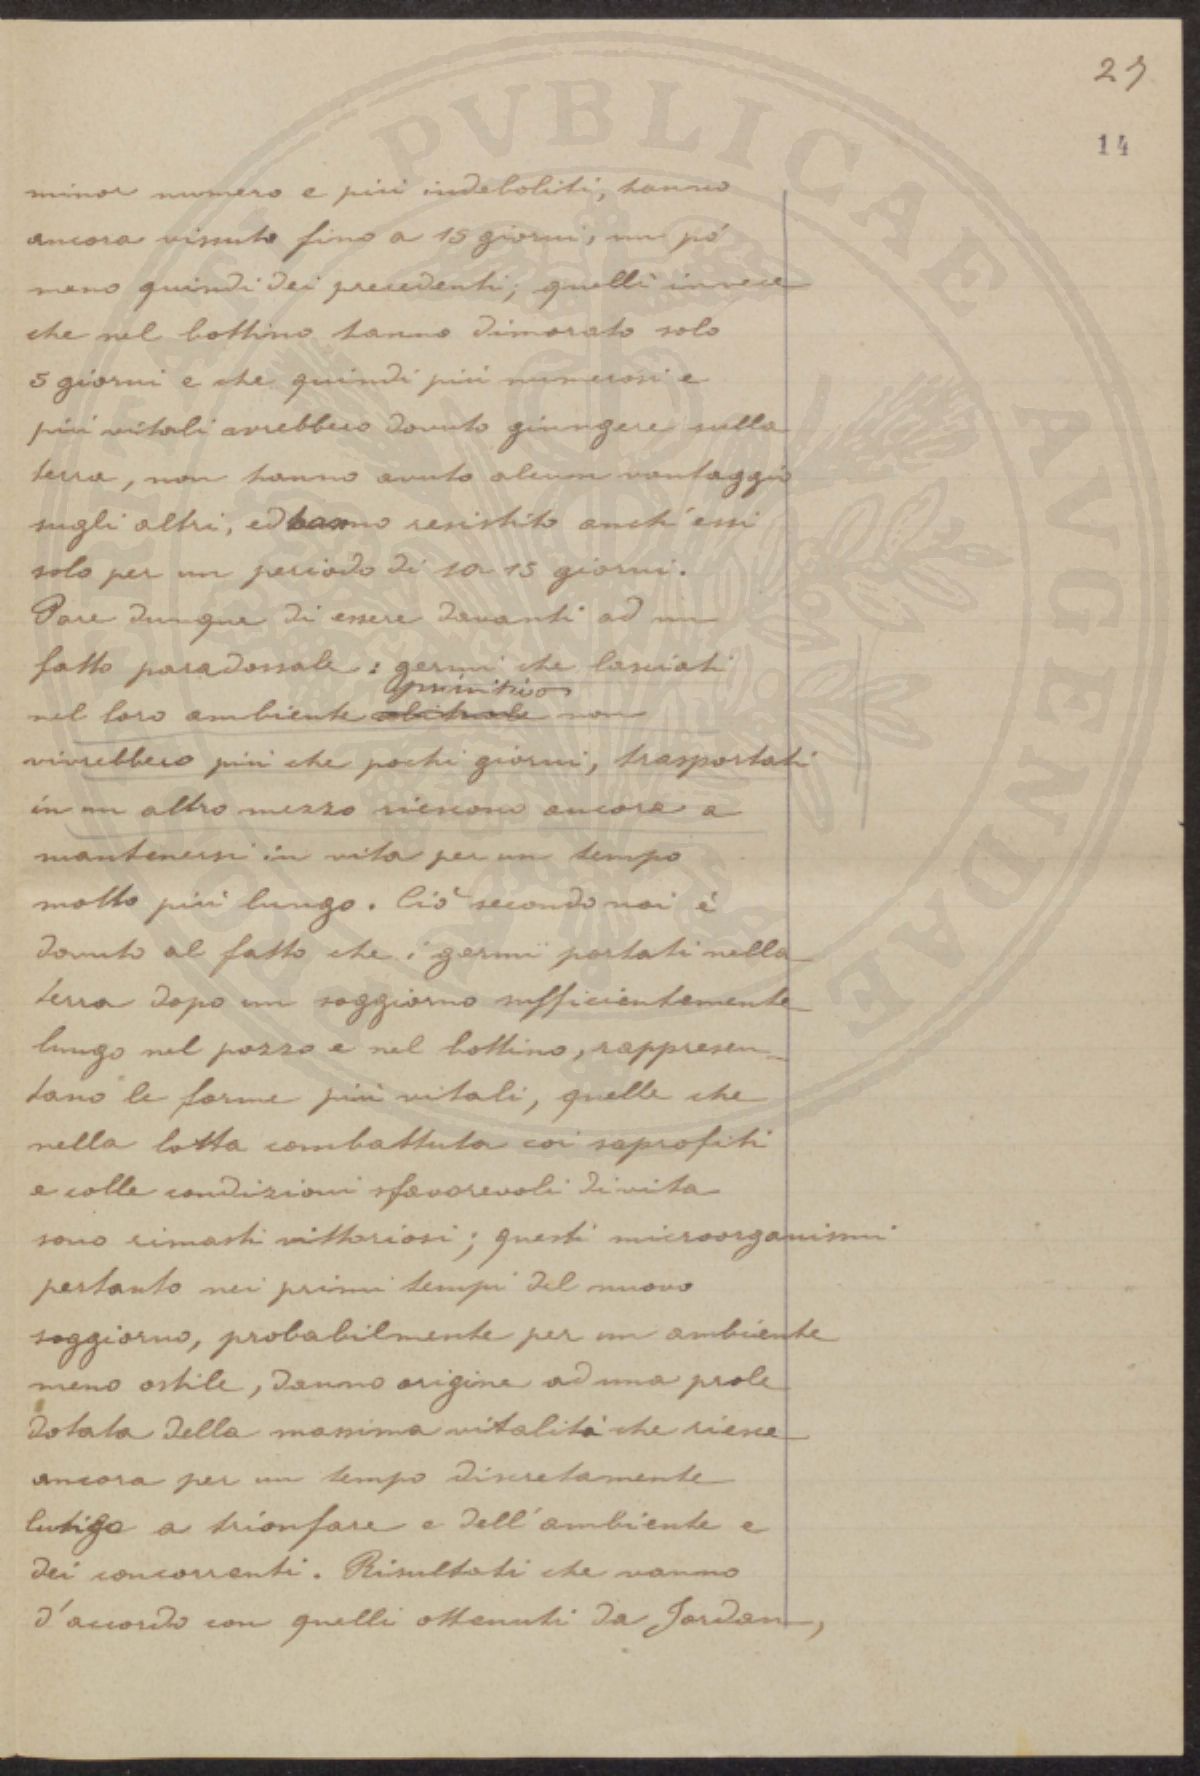 27
14
minor numero e più indeboliti, hanno
ancora vissuto fino a 15 giorni, un pó
meno quindi dei precedenti; quelli invece
che nel bottino hanno dimorato solo
5 giorni e che quindi più numerosi e
più vitali avrebbero dovuto giungere sulla
terra, non hanno avuto alcun vantaggio
sugli altri, ed hanno resistito anch'essi
solo per un periodo di 10 15 giorni.
Pare dunque di essere davanti ad un
fatto paradossale: germi che lasciati
primitivo
nel loro ambiente non
vivrebbero più che pochi giorni, trasportati
in un altro mezzo riescono ancora a
mantenersi in vita per un tempo
molto più lungo. Ciò secondo noi é
dovuto al fatto che i germi portati nella
terra dopo un soggiorno sufficientemente
lungo nel pozzo e nel bottino, rappresen-
tano le forme più vitali, quelle che
nella lotta combattuta coi saprofiti
e colle condizioni sfavorevoli di vita
sono rimasti vittoriosi; questi microorganismi
pertanto nei primi tempi del nuovo
soggiorno, probabilmente per un ambiente
meno ostile, danno origine ad una prole
dotata della massima vitalità che riesce
ancora per un tempo discretamente
lungo a trionfare e dell'ambiente e
dei concorrenti. Risultati che vanno
d'accordo con quelli ottenuti da Jordan,
PVBLICAE AVGENDAE